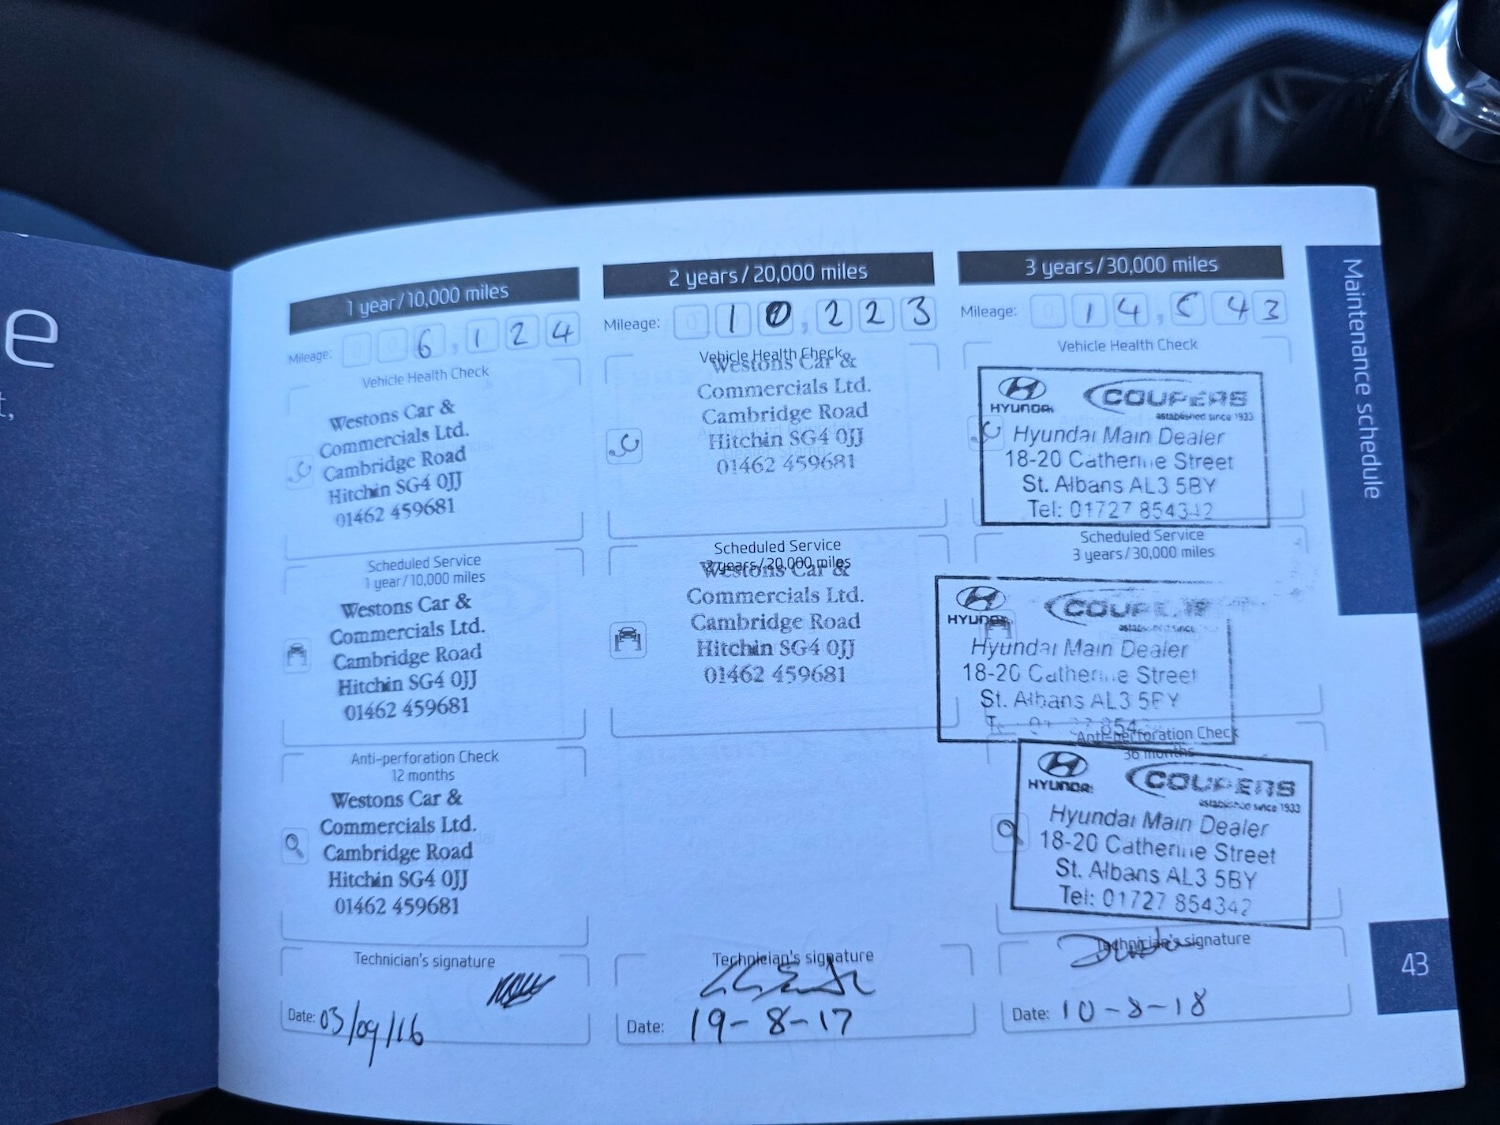 e
t,
1 year/10,000 miles
Mileage: 006,124
Vehicle Health Check
Westons Car &
Commercials Ltd.
Cambridge Road
Hitchin SG4 0JJ
01462 459681
Scheduled Service
1 year/10,000 miles
Westons Car &
Commercials Ltd.
Cambridge Road
Hitchin SG4 0JJ
01462 459681
Anti-perforation Check
12 months
Westons Car &
Commercials Ltd.
Cambridge Road
Hitchin SG4 0JJ
01462 459681
Technician's signature
Date: 03/09/16
2 years/20,000 miles
Mileage: 010,223
Vehicle Health Check
Westons Car &
Commercials Ltd.
Cambridge Road
Hitchin SG4 0JJ
01462 459681
Scheduled Service
2 years/20,000 miles
Westons Car &
Commercials Ltd.
Cambridge Road
Hitchin SG4 0JJ
01462 459681
Technician's signature
Date: 19-8-17
3 years/30,000 miles
Mileage: 014,543
Vehicle Health Check
HYUNDAI COUPERS
established since 1933
Hyundai Main Dealer
18-20 Catherine Street
St. Albans AL3 5BY
Tel: 01727 854342
Scheduled Service
3 years/30,000 miles
HYUNDAI COUPERS
established since
Hyundai Main Dealer
18-20 Catherine Street
St. Albans AL3 5BY
Anti-perforation Check
36 months
HYUNDAI COUPERS
established since 1933
Hyundai Main Dealer
18-20 Catherine Street
St. Albans AL3 5BY
Tel: 01727 854342
Technician's signature
Date: 10-8-18
Maintenance schedule
43